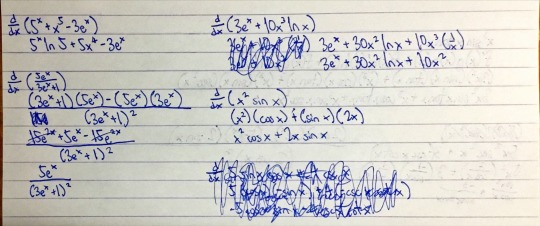 d/dx (5^x + x^5 - 3e^x)
5^x ln 5 + 5x^4 - 3e^x
d/dx (5e^x / (3e^x + 1))
((3e^x + 1)(5e^x) - (5e^x)(3e^x)) / (3e^x + 1)^2
(15e^2x + 5e^x - 15e^2x) / (3e^x + 1)^2
5e^x / (3e^x + 1)^2
d/dx (3e^x + 10x^3 ln x)
3e^x + 30x^2 ln x + 10x^3 (1/x)
3e^x + 30x^2 ln x + 10x^2
d/dx (x^2 sin x)
(x^2)(cos x) + (sin x)(2x)
x^2 cos x + 2x sin x
d/dx